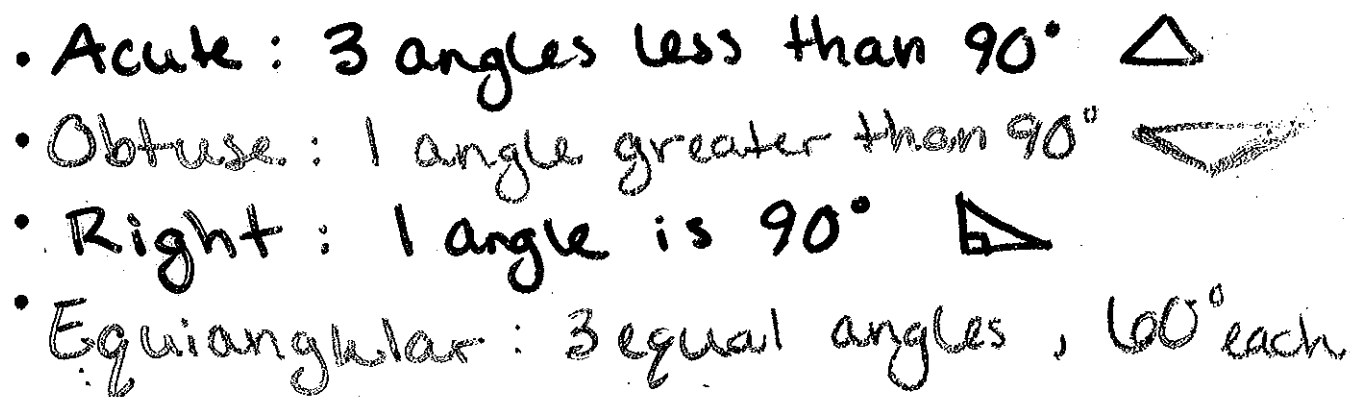 • Acute : 3 angles less than 90°
• Obtuse : 1 angle greater than 90°
• Right : 1 angle is 90°
• Equiangular : 3 equal angles , 60° each